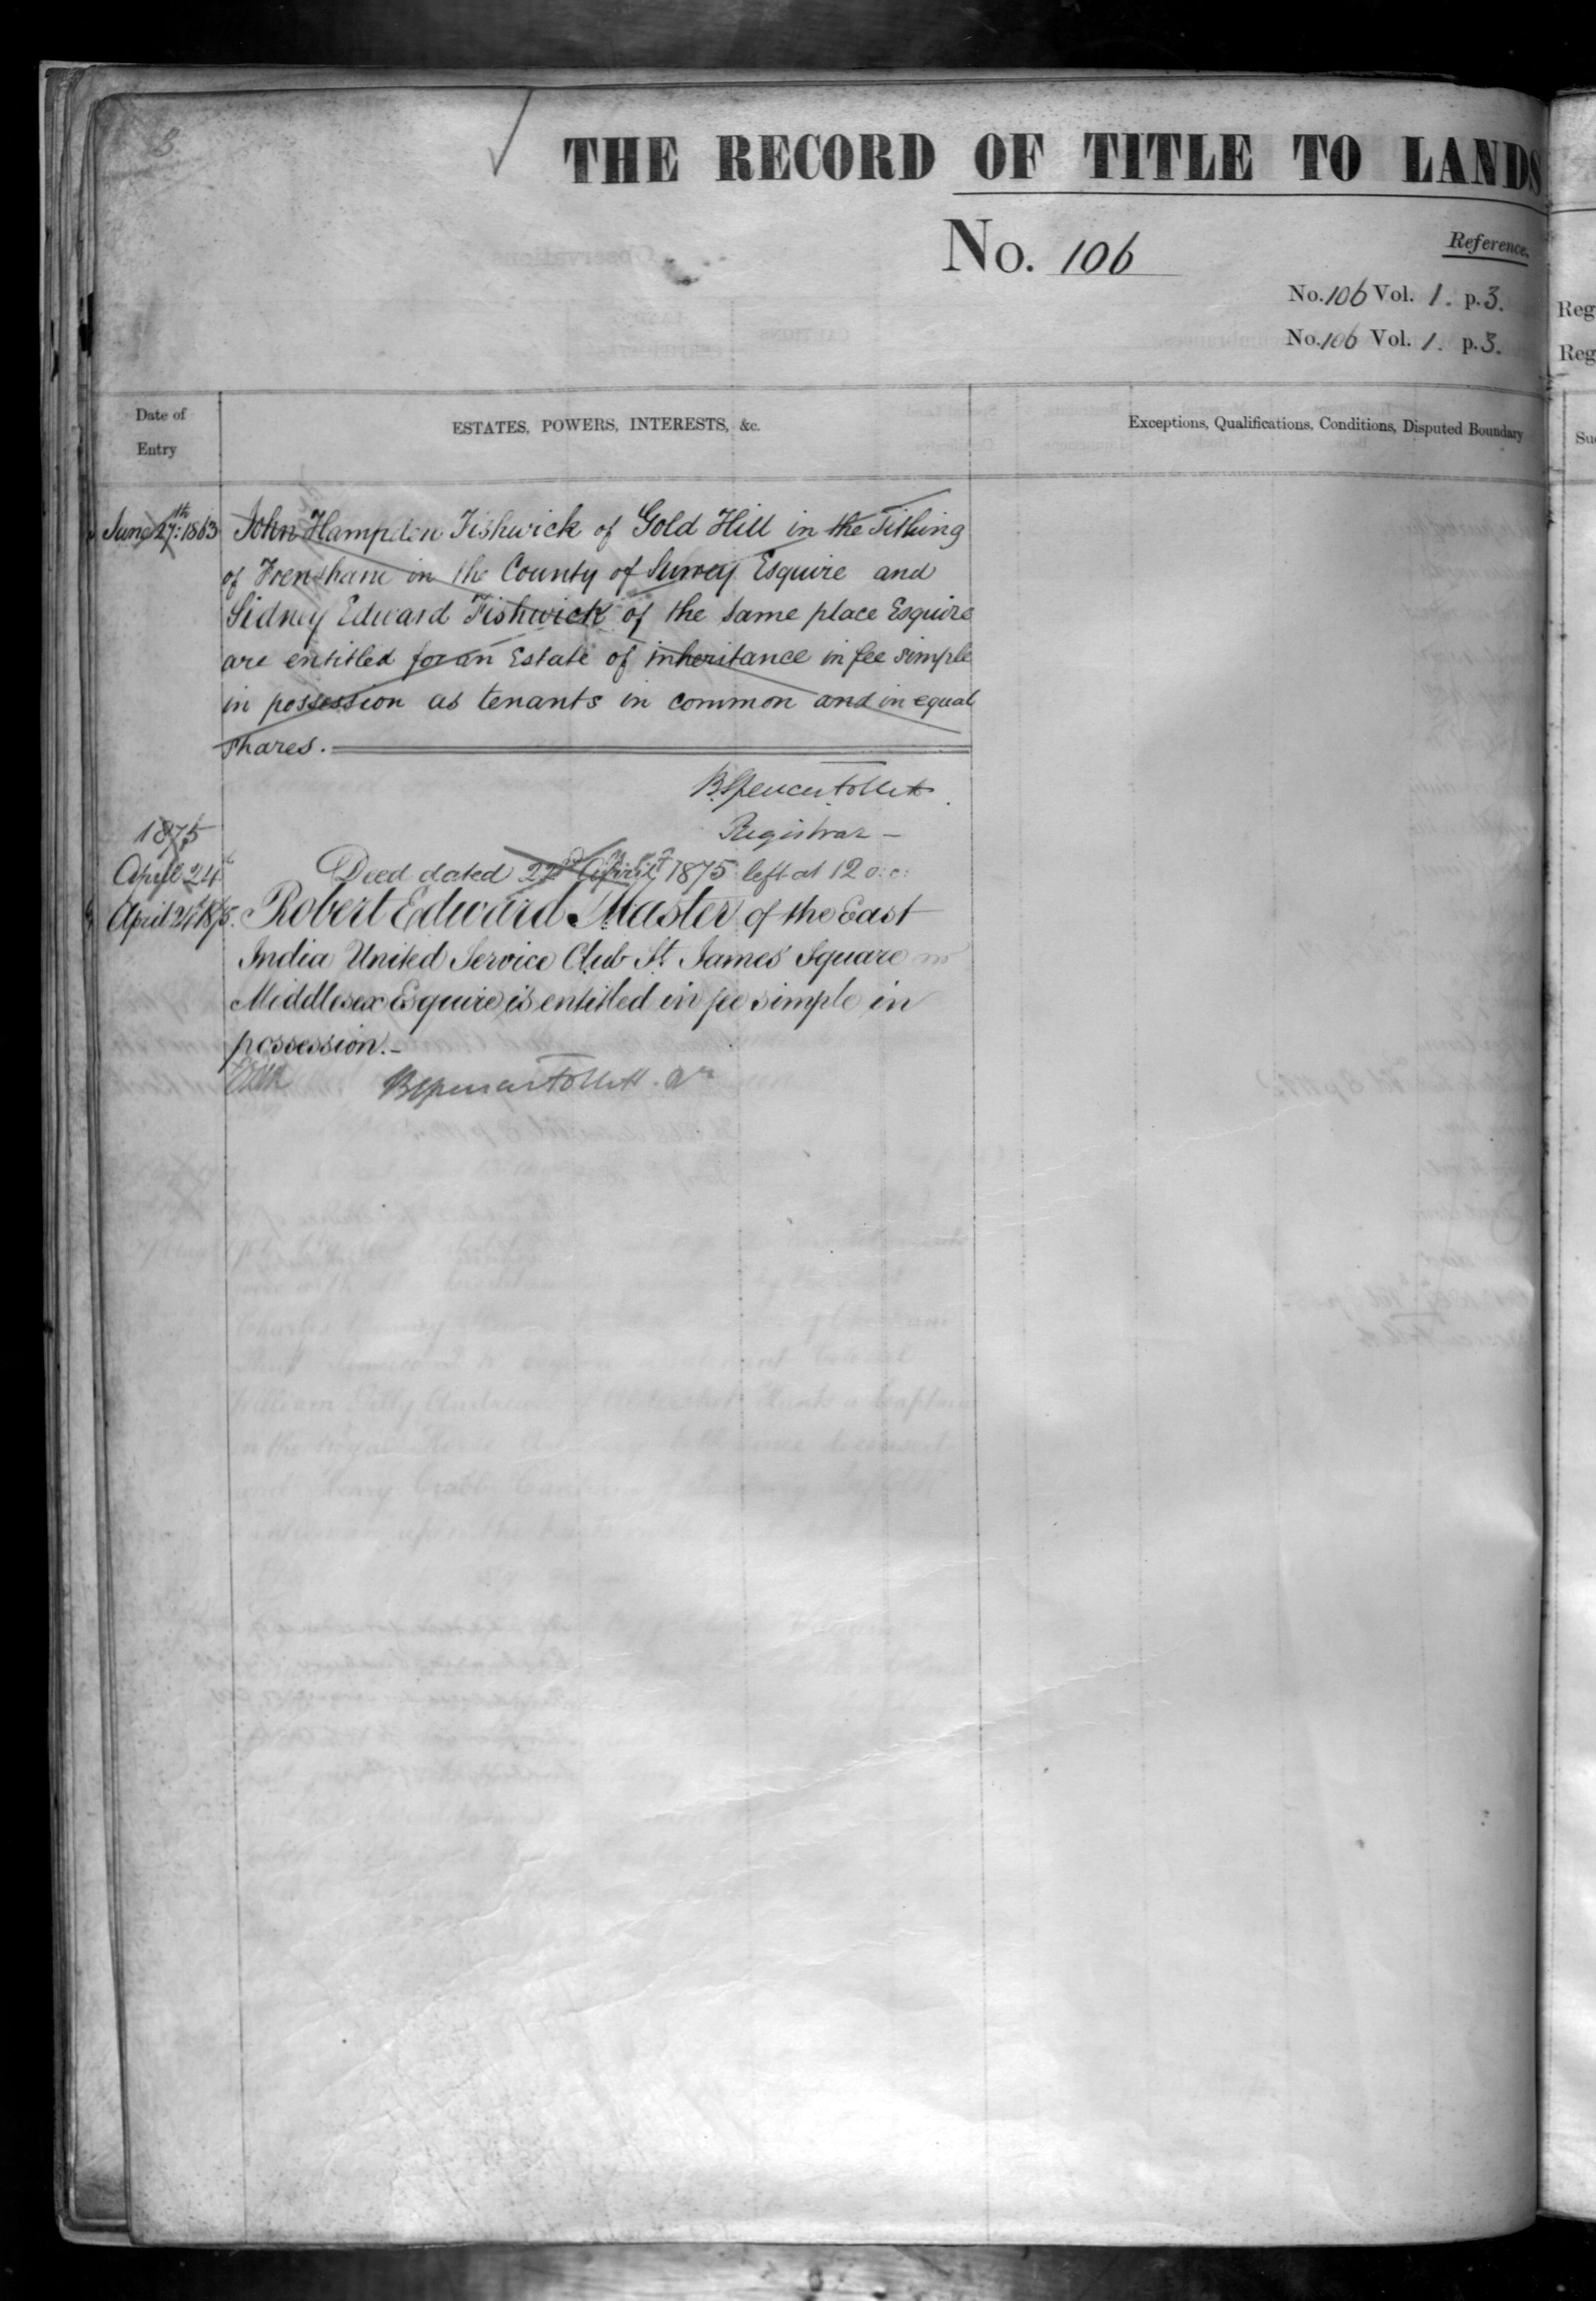 3
THE RECORD OF TITLE TO LANDS
No. 106
Reference.
No. 106 Vol. 1. p. 3.
No. 106 Vol. 1. p. 3.
Reg
Reg
Date of
Entry
ESTATES, POWERS, INTERESTS, &c.
Exceptions, Qualifications, Conditions, Disputed Boundary
June 27th: 1863 John Hampden Fishwick of Gold Hill in the Tithing
of Frensham in the County of Surrey Esquire and
Sidney Edward Fishwick of the same place Esquire
are entitled for an Estate of inheritance in fee simple
in possession as tenants in common and in equal
shares.
B. Spencer Follett
Registrar
1875
April 24 Deed dated 22nd April 1875 left at 12 o.c.
April 24 1875. Robert Edward Master of the East
India United Service Club St. James' Square
Middlesex Esquire is entitled in fee simple in
possession.
B Spencer Follett